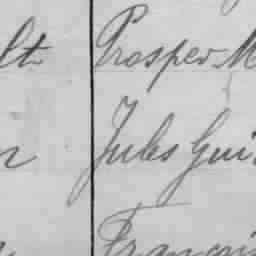 lt Prosper M
Jules Gui
Françoi